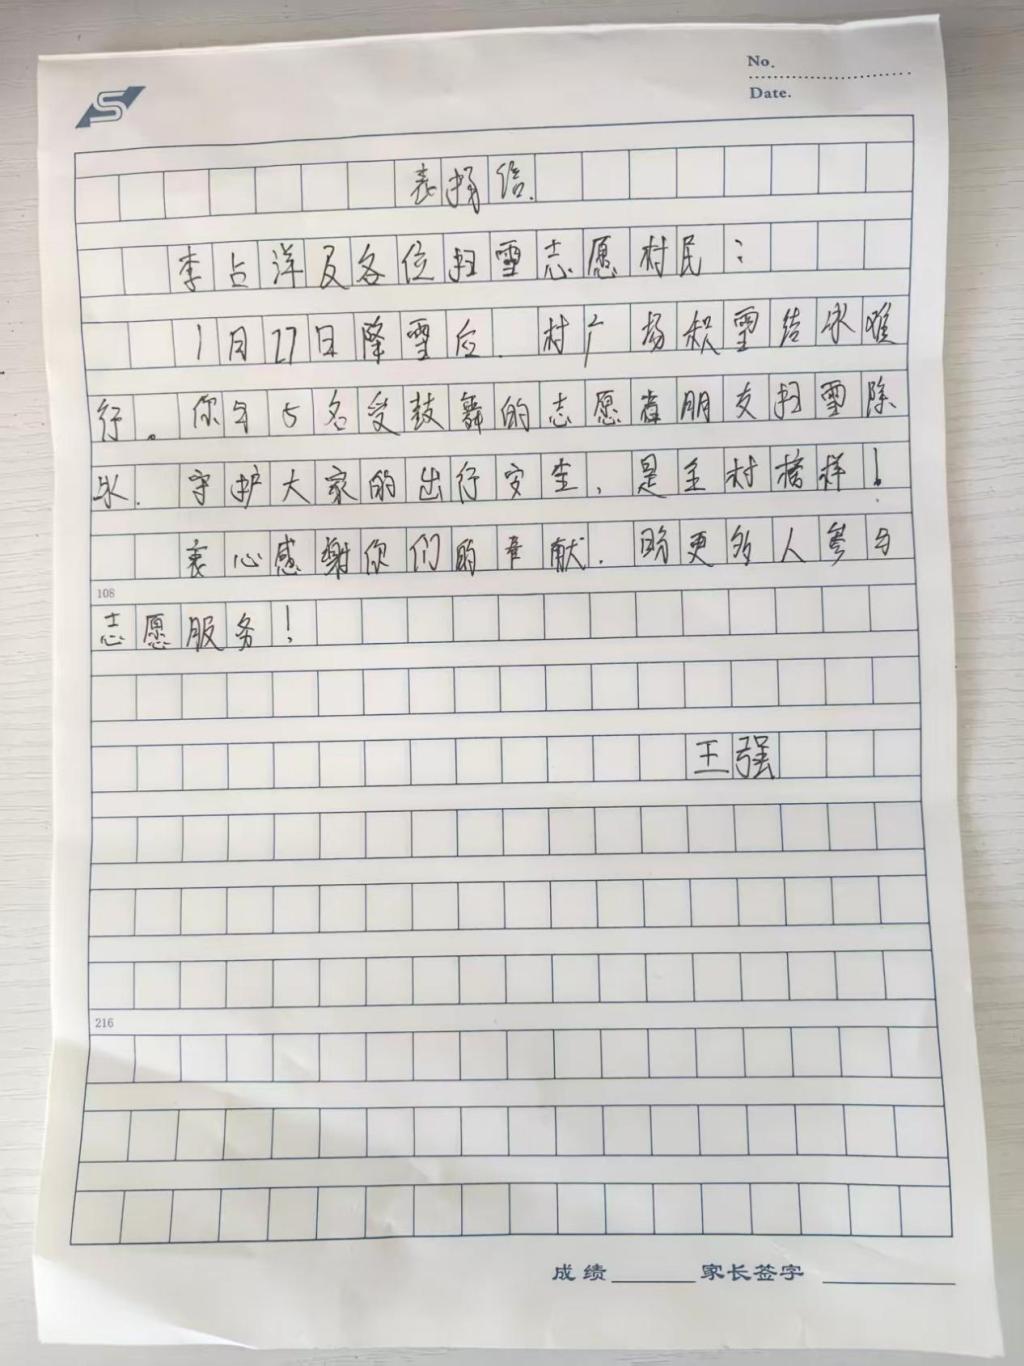 No.
Date.
表扬信.
李占洋及各位扫雪志愿村民：
1月27日降雪后.村广场积雪结冰难
行。你与5名受鼓舞的志愿者朋友扫雪除
冰.守护大家的出行安全,是全村榜样!
衷心感谢你们的奉献.盼更多人参与
108
志愿服务!
王强
216
成绩 家长签字